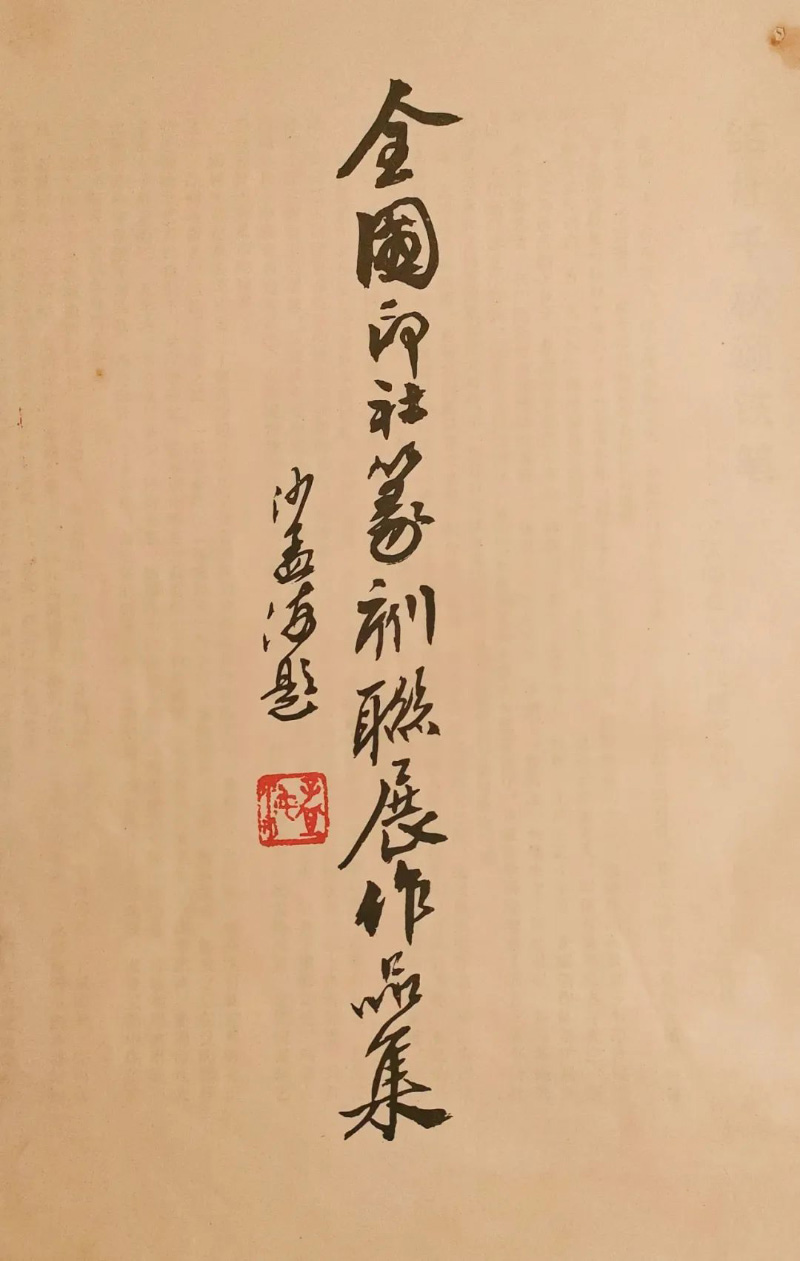 全國印社篆刻聯展作品集
沙孟海題